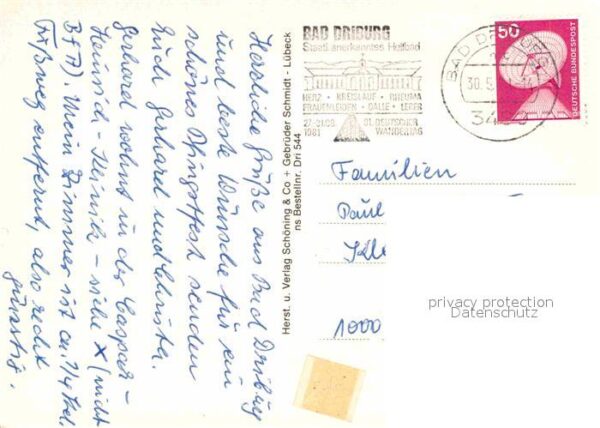 Herzliche Grüße aus Bad Driburg
und beste Wünsche für ein
schönes Pfingstfest senden
Euch Gerhard und Christa.
Gerhard wohnt in der Caspar-
Heinrich-Klinik - siehe X (nicht
BfA). Mein Zimmer ist ca. 1/4 Std.
Fußweg entfernt, also recht
günstig.
Herst. u. Verlag Schöning & Co + Gebrüder Schmidt - Lübeck
ns Bestellnr. Dri 544
BAD DRIBURG
Staatl. anerkanntes Heilbad
HERZ • KREISLAUF • RHEUMA
FRAUENLEIDEN • GALLE • LEBER
27.-31.08 81. DEUTSCHER
1981 WANDERTAG
BAD DRIBURG
30.5.
50
DEUTSCHE BUNDESPOST
Familien
Paul
1000
privacy protection
Datenschutz